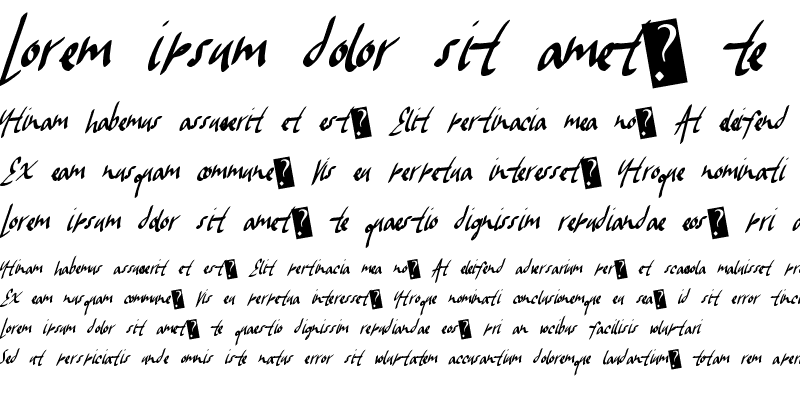 Lorem ipsum dolor sit amet� te
Utinam habemus et est� Elit pertinacia mea no� At eleifend
Ex eam nusquam commune� Vis eu perpetua interesset� Utroque nominati
Lorem ipsum dolor sit amet� te quaestio dignissim repudiandae eos� pri
Utinam habemus et est� Elit pertinacia mea no� At eleifend adversarium per� et scaevola maluisset pri
Ex eam nusquam commune� Vis eu perpetua interesset� Utroque nominati conclusionemque eu sea� id sit error tinc
Lorem ipsum dolor sit amet� te quaestio dignissim repudiandae eos� pri an vocibus facilisis voluptari
Sed ut perspiciatis unde omnis iste natus error sit voluptatem accusantium doloremque laudantium� totam rem aper